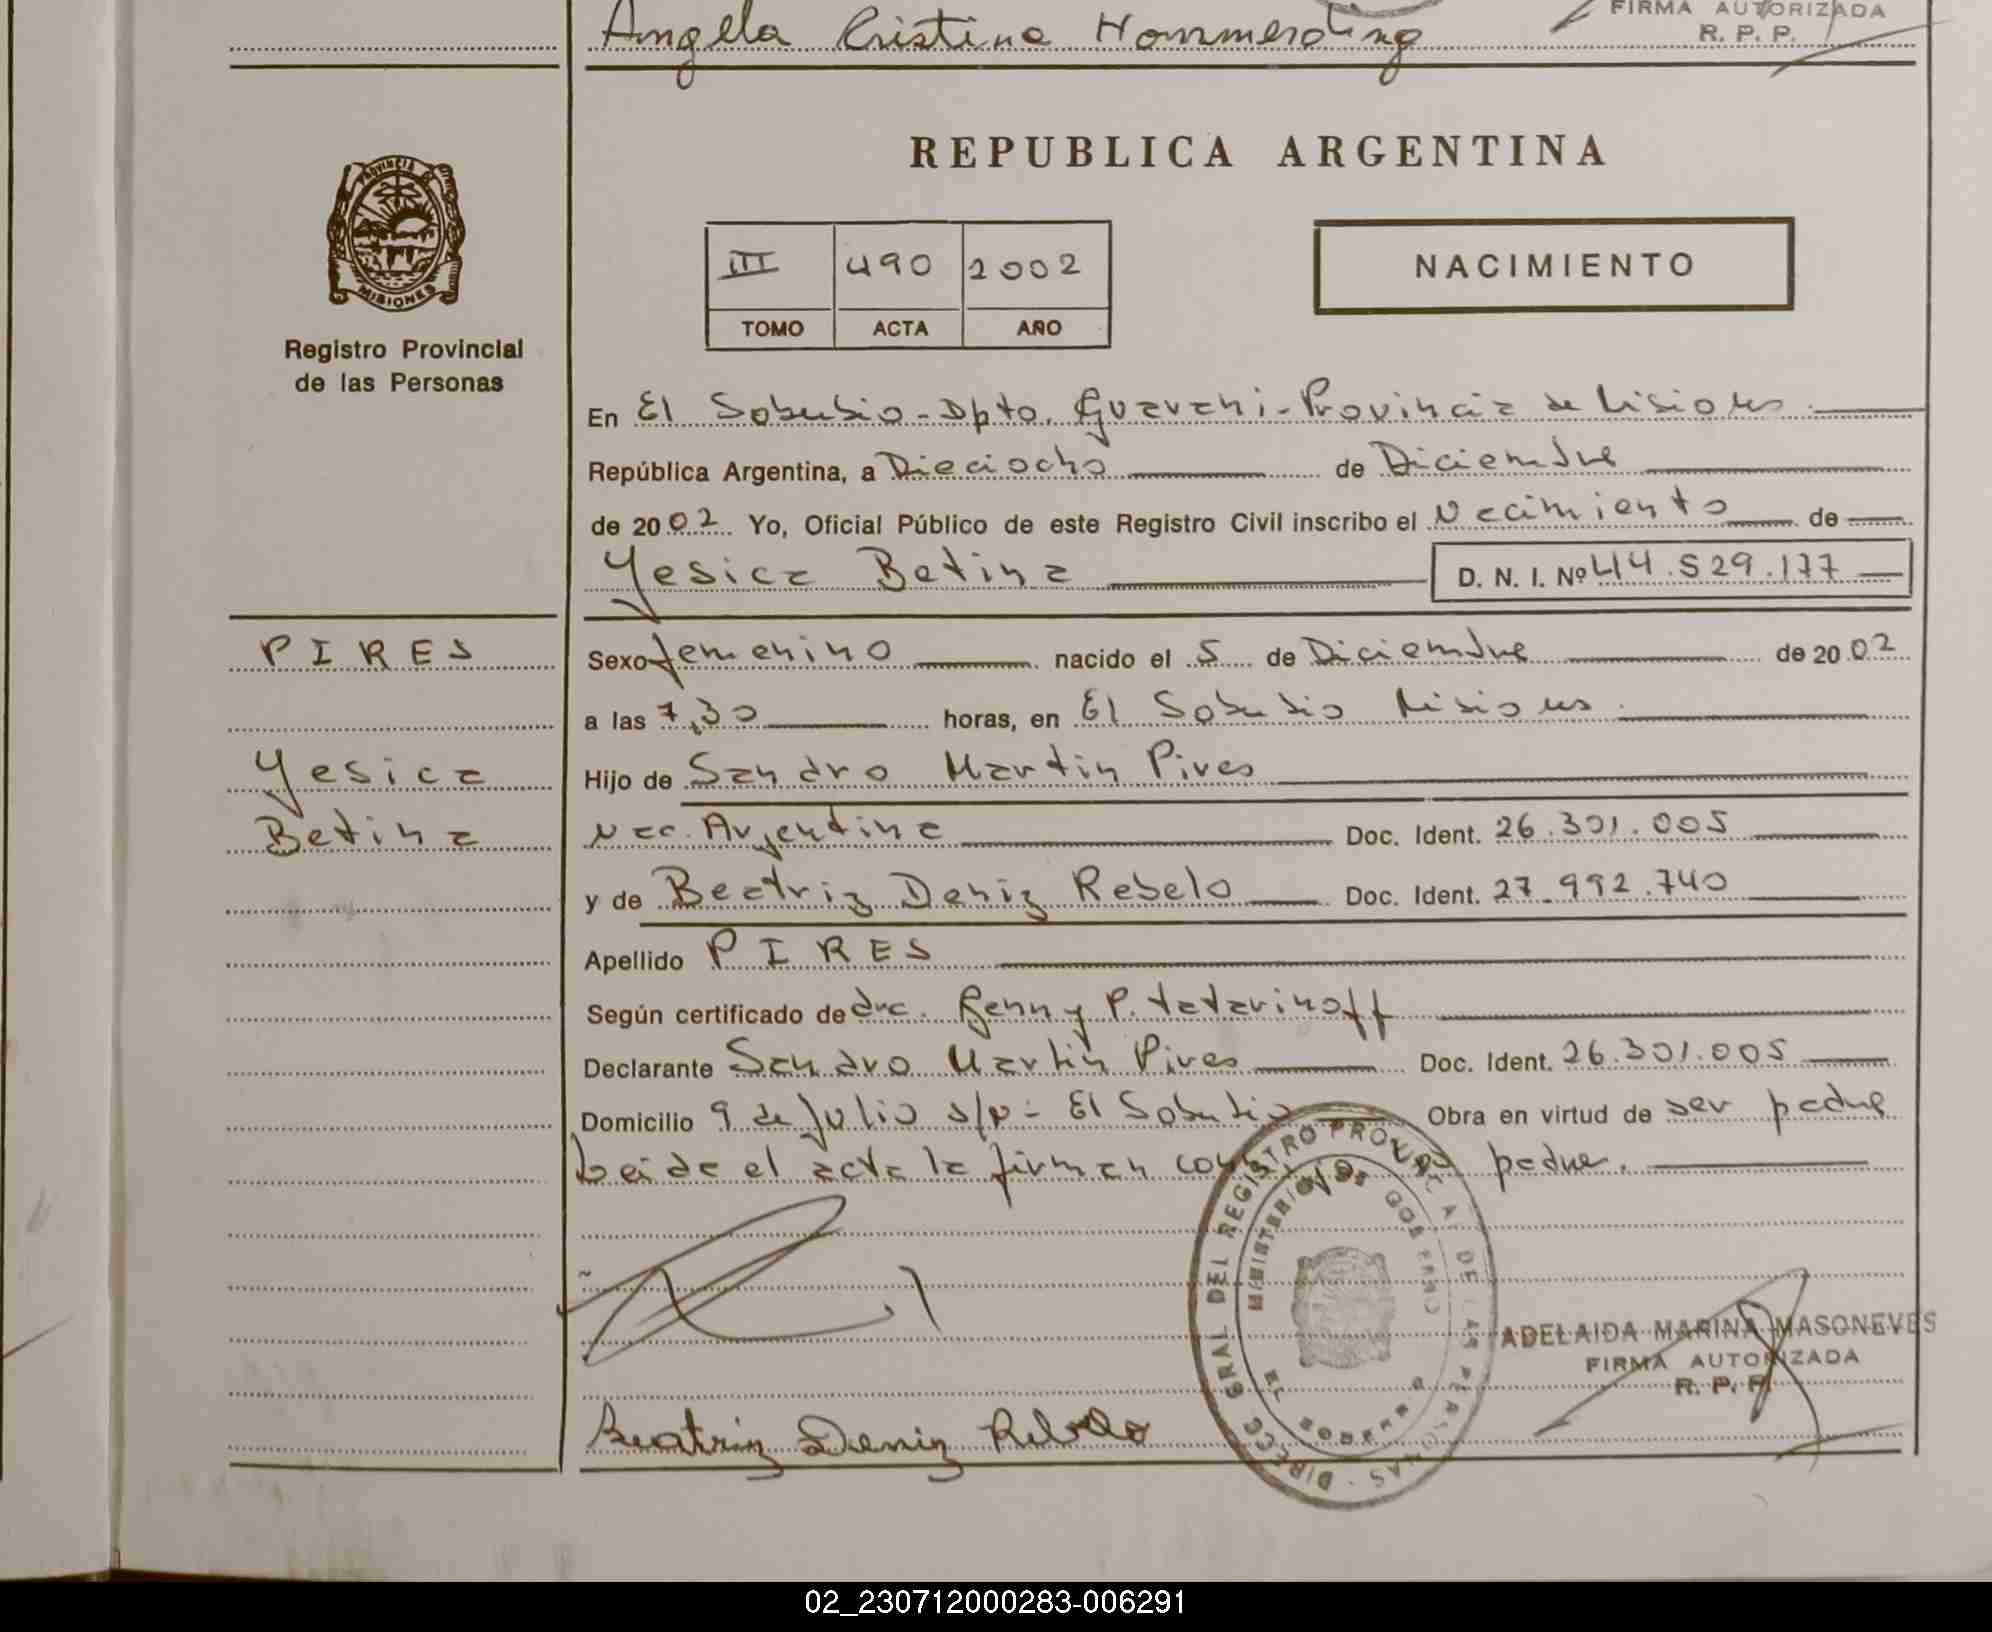 Angela Cristina Hommerding
FIRMA AUTORIZADA
R. P. P.
PROVINCIA DE
MISIONES
Registro Provincial
de las Personas
REPUBLICA ARGENTINA
III 490 2002
TOMO ACTA AÑO
NACIMIENTO
En El Soberbio - Dpto. Guarani - Provincia de Misiones
República Argentina, a Dieciocho de Diciembre
de 2002 Yo, Oficial Público de este Registro Civil inscribo el Nacimiento de
Yesica Betina D. N. I. Nº 44.529.177
PIRES
Sexo femenino nacido el 5 de Diciembre de 2002
a las 7,30 horas, en El Soberbio Misiones
Yesica
Hijo de Sandro Martin Pires
Betina
Nac. Argentina Doc. Ident. 26.301.005
y de Beatriz Deniz Rebelo Doc. Ident. 27.992.740
Apellido PIRES
Según certificado de dra. Genny P. Tatarinoff
Declarante Sandro Martin Pires Doc. Ident. 26.301.005
Domicilio 9 de Julio s/n - El Soberbio Obra en virtud de ser padre
Leida el acta la firman padre.
DIRECC. GRAL DEL REGISTRO PROVINCIAL DE LAS PERSONAS
MINISTERIO DE GOBIERNO
ADELAIDA MARINA MASONEVES
FIRMA AUTORIZADA
R. P. P.
Beatriz Deniz Rebelo
02_230712000283-006291